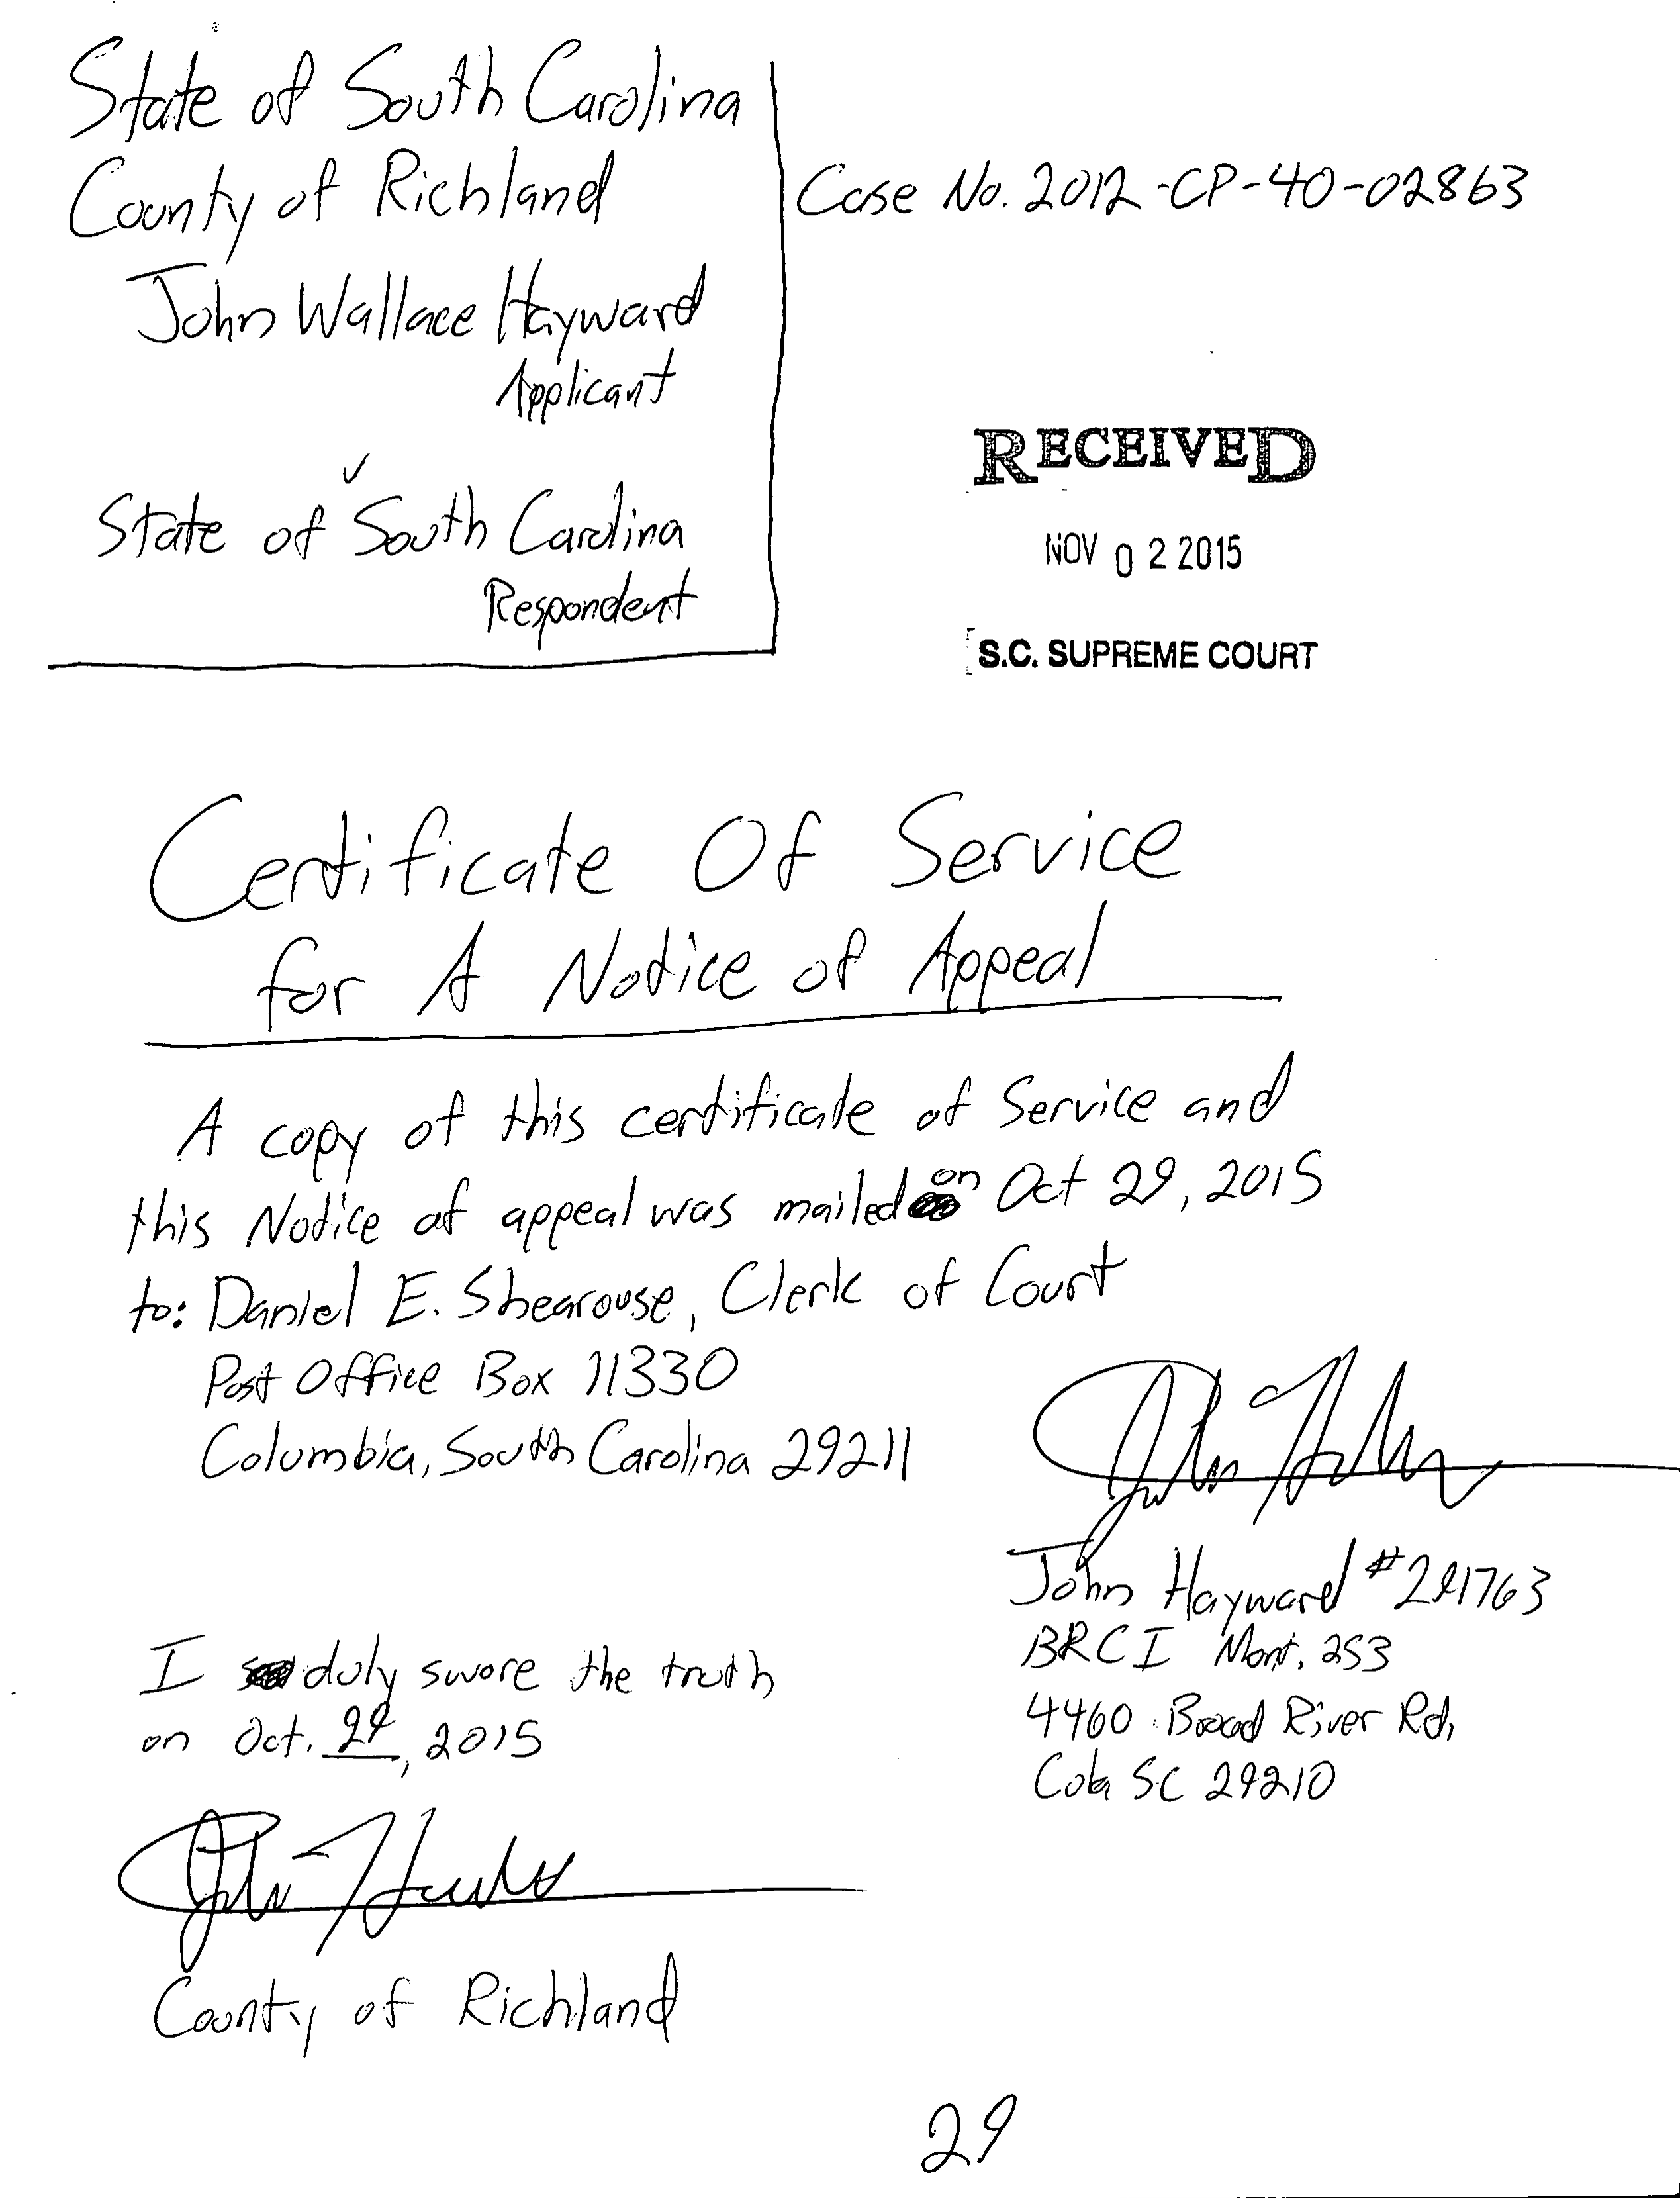 State of South Carolina
County of Richland
Case No. 2012-CP-40-02863
John Wallace Hayward
Applicant
v
State of South Carolina
Respondent
RECEIVED
NOV 02 2015
S.C. SUPREME COURT
Certificate Of Service
for A Notice of Appeal
A copy of this certificate of Service and
this Notice of appeal was mailed on Oct 29, 2015
to: Daniel E. Shearouse, Clerk of Court
Post Office Box 11330
Columbia, South Carolina 29211
John Hayward #291763
BRCI Mont. 253
4460 Broad River Rd,
Cola SC 29210
I duly swore the truth
on Oct. 29, 2015
County of Richland
29